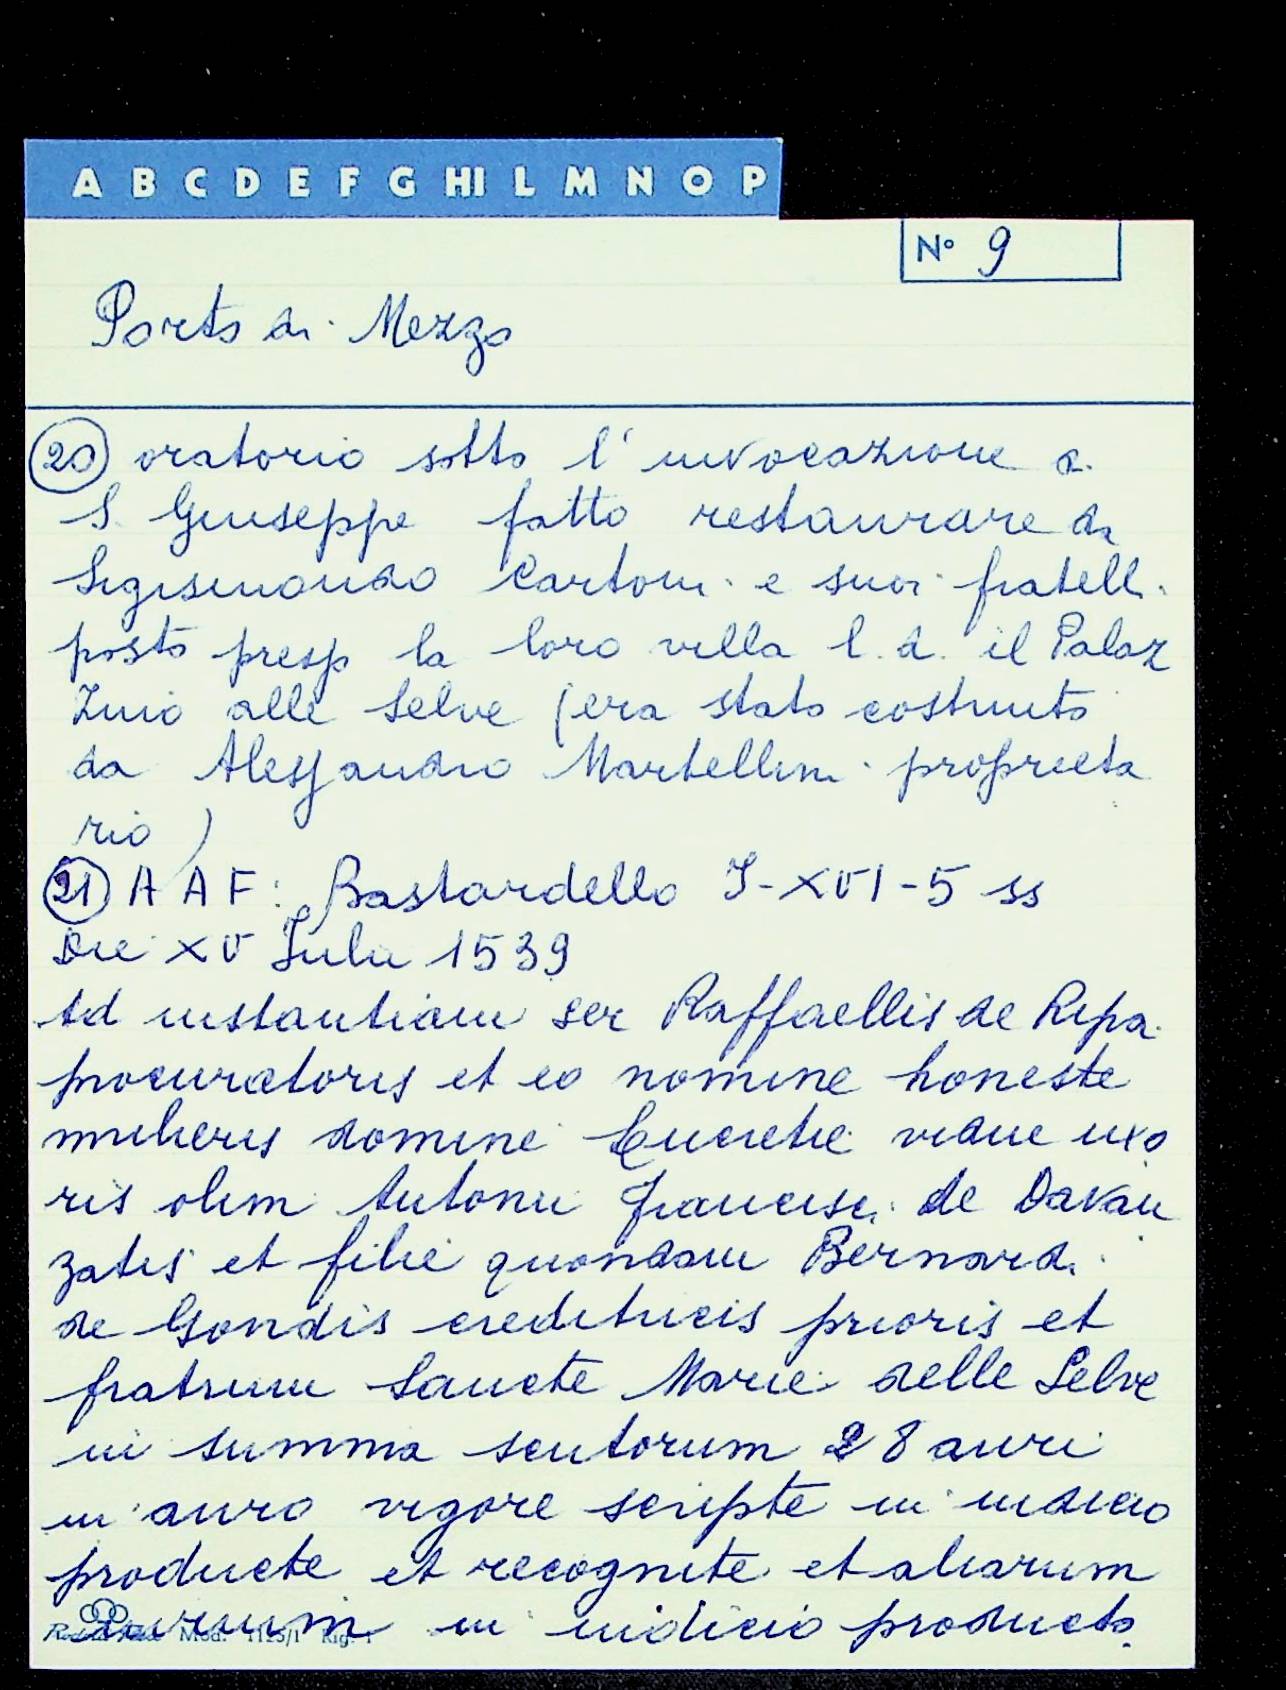 A B C D E F G HI L M N O P
N° 9
Porto di Mezzo
20 oratorio sotto l'invocazione di
S. Giuseppe fatto restaurare da
Sigismondo Cartoni e suoi fratelli
posto presso la loro villa l. d. il Palaz
zino alle Selve (era stato costruito
da Alessandro Martellini proprieta
rio)
21 A A F: Bastardello I-XVI-5 ss
Die XV Julii 1539
Ad instantiam ser Raffaellis de Ripa
procuratoris et eo nomine honeste
mulieris domine Lucretie vidue uxo
ris olim Antonii Francisci de Davan
zatis et filie quondam Bernardi
de Gondis creditricis prioris et
fratrum Sancte Marie delle Selve
in summa scutorum 28 auri
in auro vigore scripte in iudicio
producte et recognite et aliarum
in iudicio producto.
Mod. 1125/1 Rig. 1